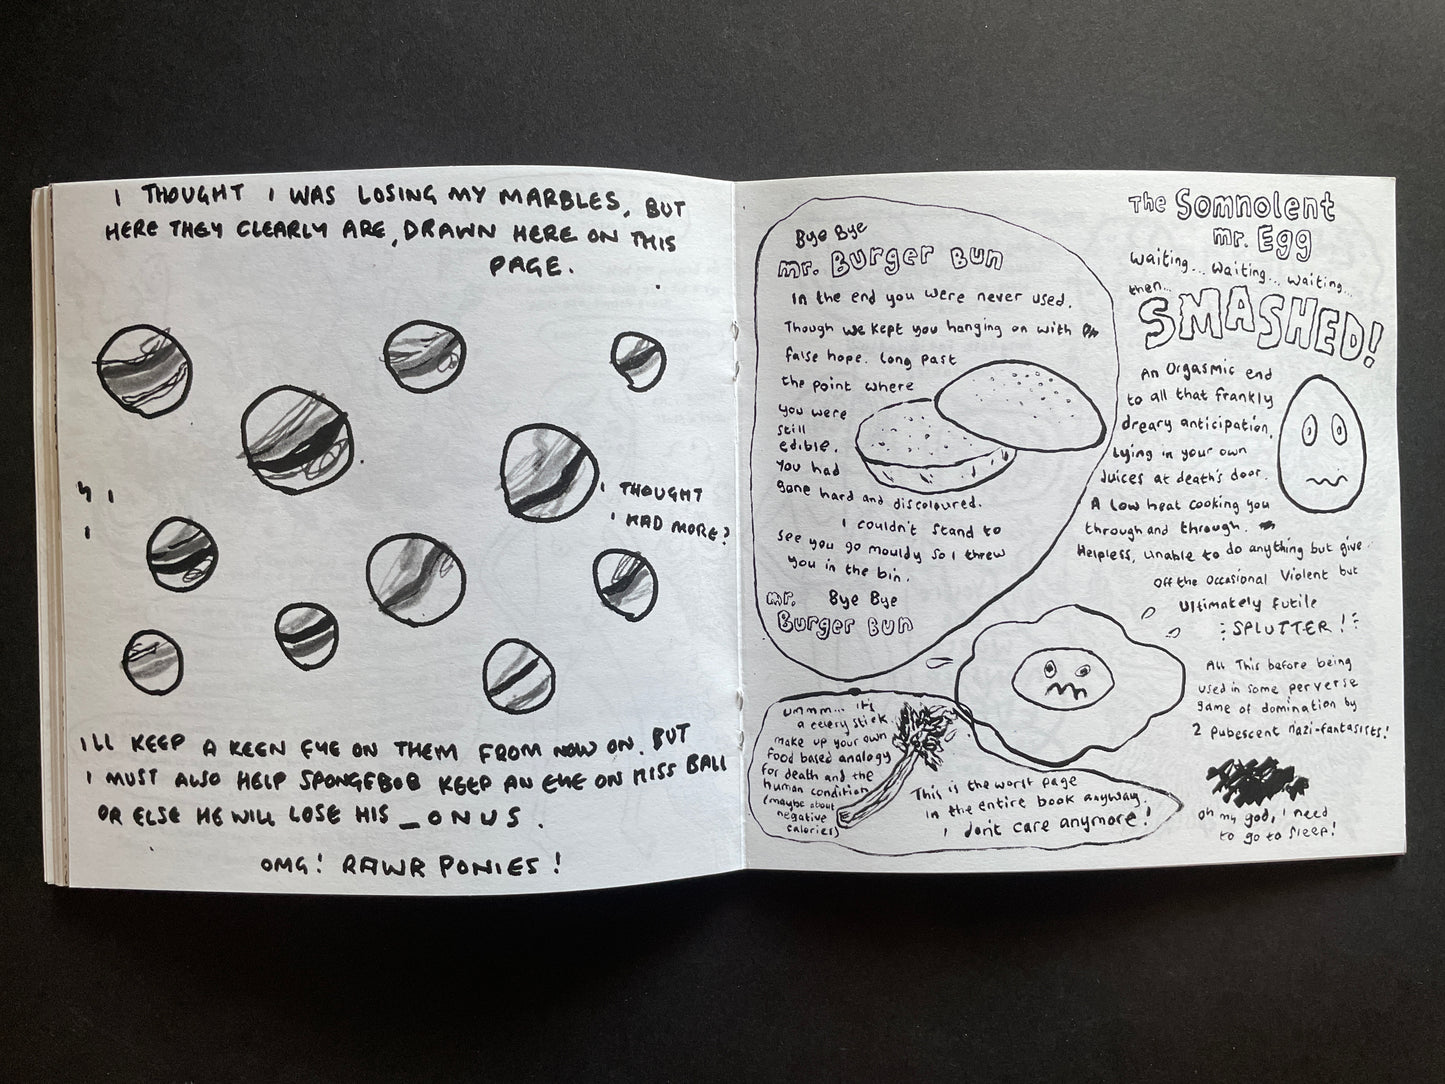 I THOUGHT I WAS LOSING MY MARBLES, BUT
HERE THEY CLEARLY ARE, DRAWN HERE ON THIS
PAGE.
I THOUGHT
I HAD MORE?
I'LL KEEP A KEEN EYE ON THEM FROM NOW ON. BUT
I MUST ALSO HELP SPONGEBOB KEEP AN EYE ON MISS BALL
OR ELSE HE WILL LOSE HIS _ONUS.
OMG! RAWR PONIES!
Bye Bye
mr. Burger Bun
In the end you were never used.
Though we kept you hanging on with
false hope. Long past
the point where
you were
still
edible.
You had
gone hard and discoloured.
I couldn't stand to
see you go mouldy so I threw
you in the bin.
Bye Bye
mr.
Burger Bun
ummm... it's
a celery stick
make up your own
food based analogy
for death and the
human condition
(maybe about
negative
calories)
This is the worst page
in the entire book anyway.
I don't care anymore!
The Somnolent
mr. Egg
Waiting... Waiting... Waiting...
then...
SMASHED!
An Orgasmic end
to all that frankly
dreary anticipation,
Lying in your own
Juices at death's door.
A low heat cooking you
through and through.
Helpless, unable to do anything but give
off the occasional violent but
ultimately futile
SPLUTTER!
All This before being
used in some perverse
game of domination by
2 pubescent nazi-fantasists!
oh my god, I need
to go to sleep!